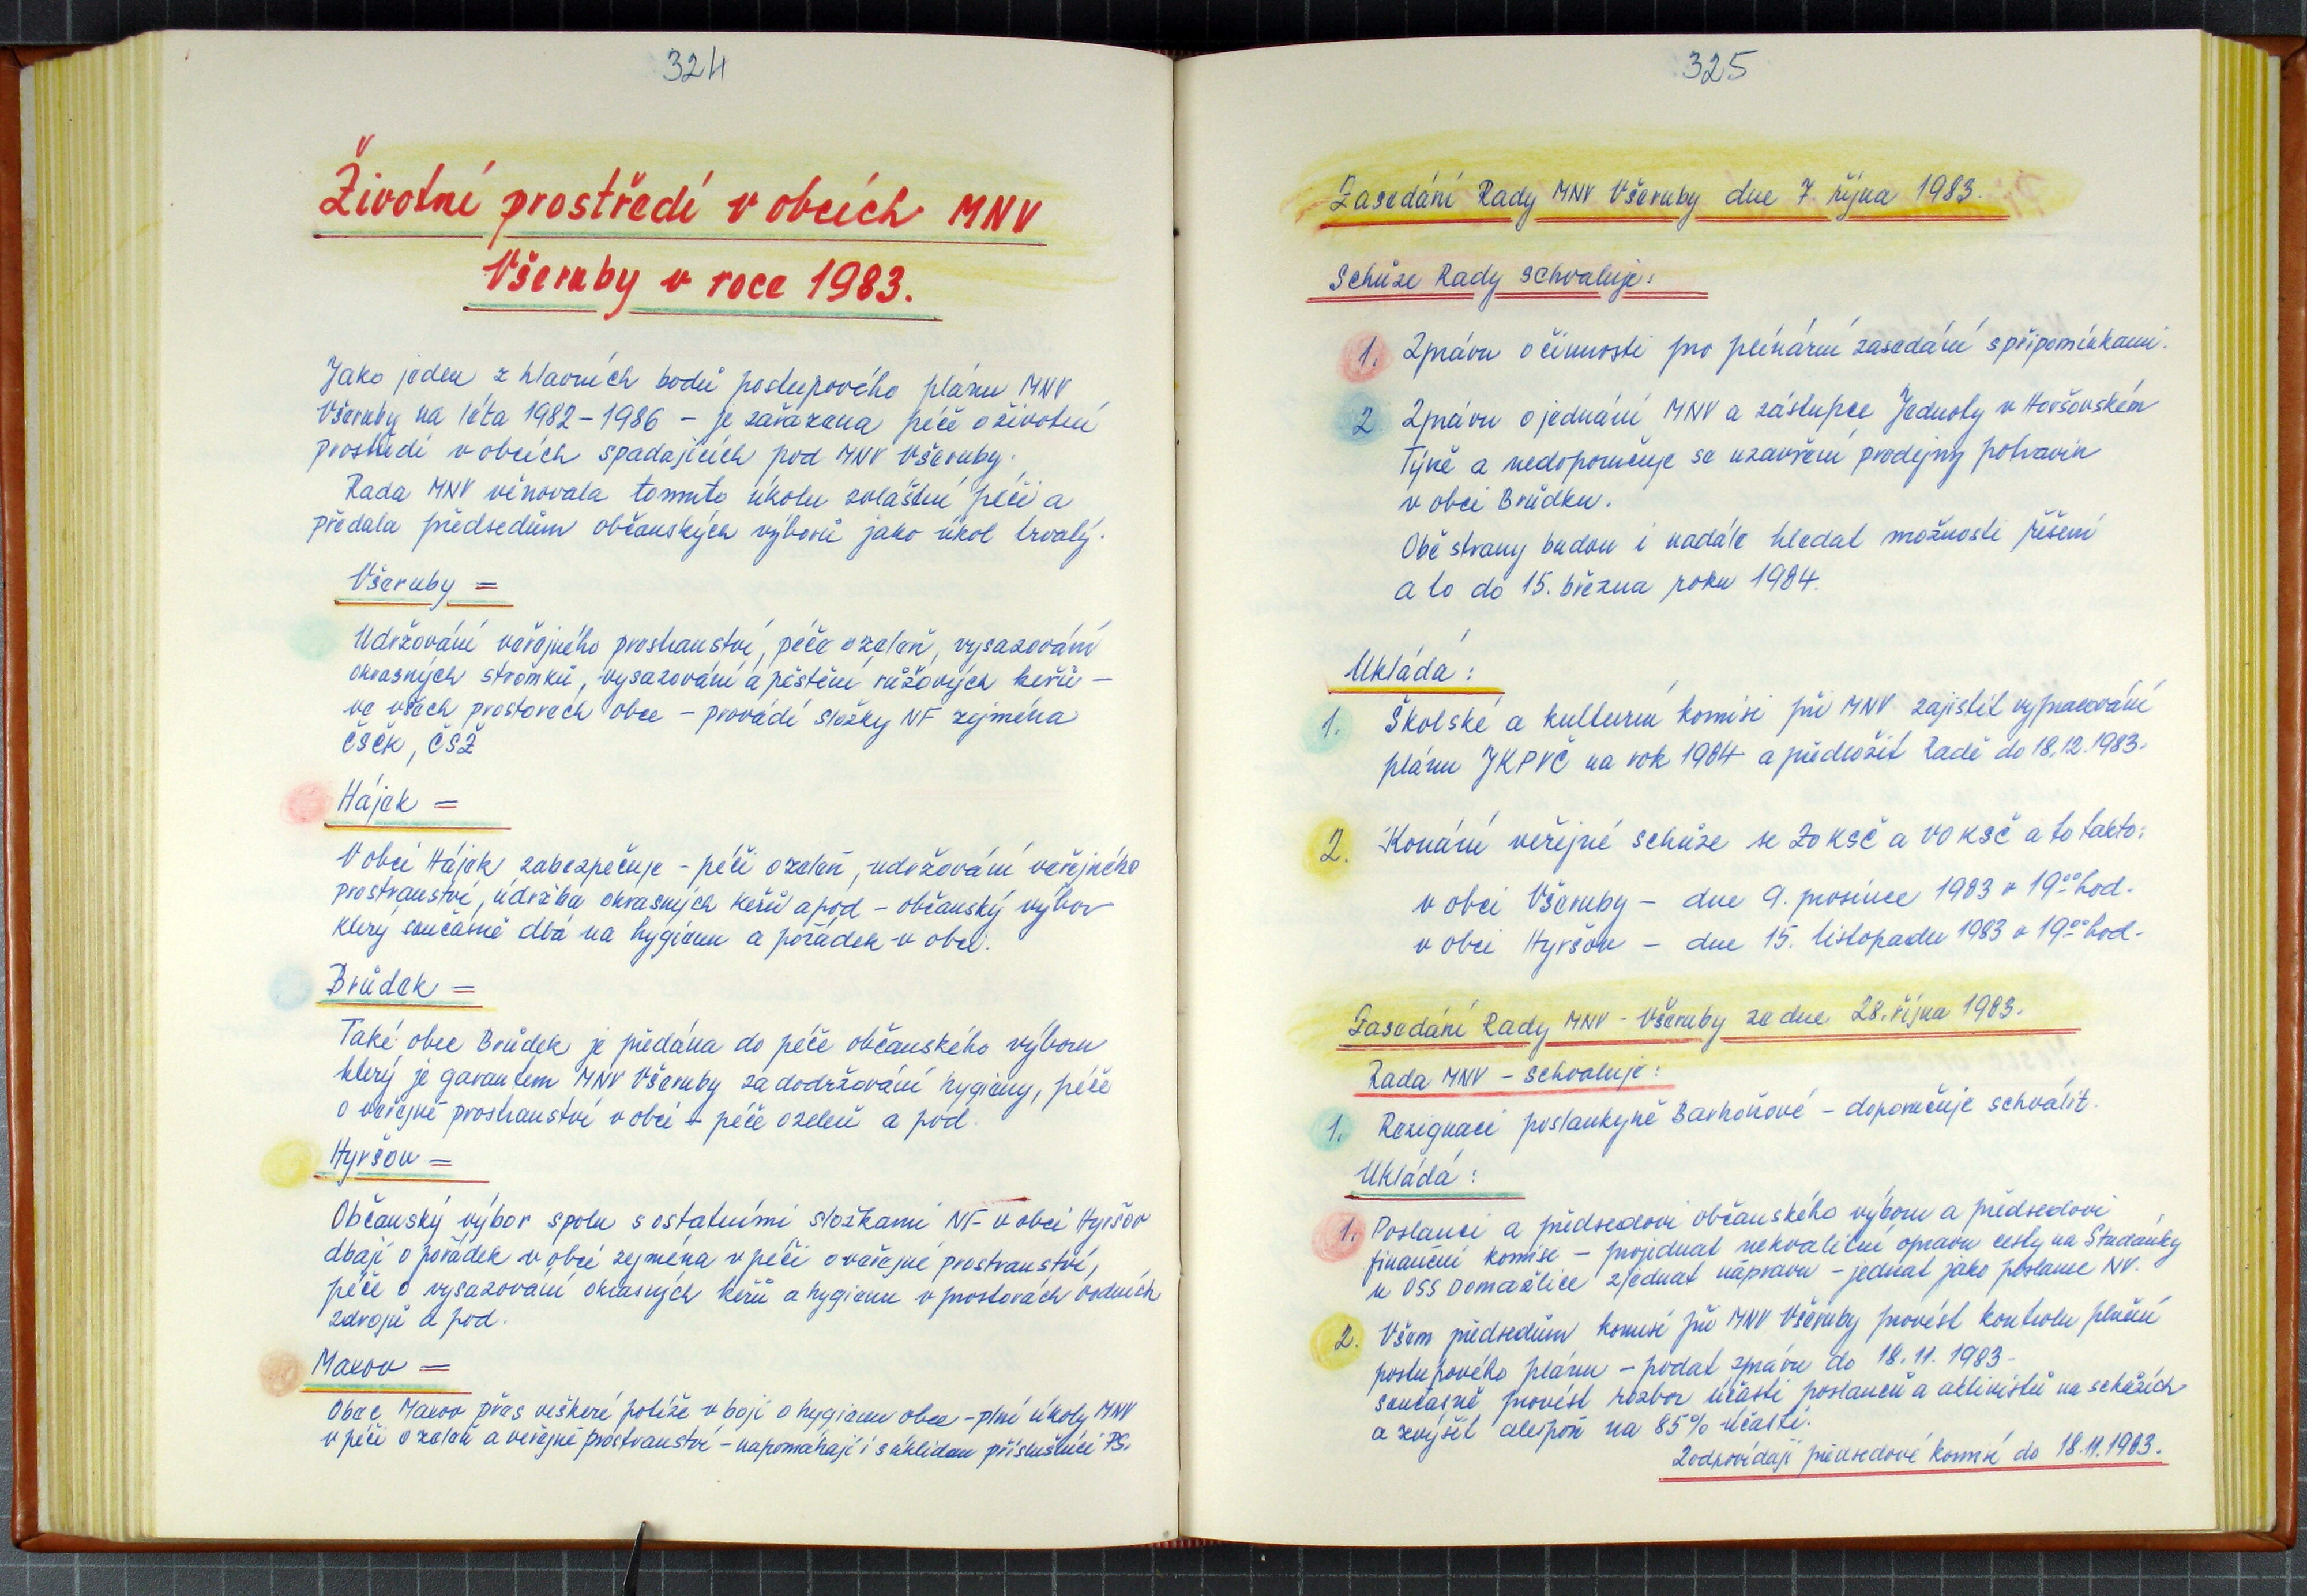 324
Životní prostředí v obcích MNV
Všeruby v roce 1983.
Jako jeden z hlavních bodů postupového plánu MNV
Všeruby na léta 1982-1986 - je zařazena péče o životní
prostředí v obcích spadajících pod MNV Všeruby.
Rada MNV věnovala tomuto úkolu zvláštní péči a
předala předsedům občanských výborů jako úkol trvalý.
Všeruby =
Udržování veřejného prostranství, péče o zeleň, vysazování
okrasných stromků, vysazování a pěstění růžových keřů -
ve všech prostorech obce - provádí složky NF zejména
ČSČK, ČSŽ
Hájek =
V obci Hájek zabezpečuje - péči o zeleň, udržování veřejného
prostranství, údržba okrasných keřů a pod - občanský výbor
který současně dbá na hygienu a pořádek v obci.
Brůdek =
Také obec Brůdek je předána do péče občanského výboru
který je garantem MNV Všeruby za dodržování hygieny, péče
o veřejné prostranství v obci + péče o zeleň a pod.
Hyršov =
Občanský výbor spolu s ostatními složkami NF v obci Hyršov
dbají o pořádek v obci zejména v péči o veřejné prostranství,
péče o vysazování okrasných keřů a hygienu v prostorách vodních
zdrojů a pod.
Maxov =
Obec Maxov přes veškeré potíže v boji o hygienu obce - plní úkoly MNV
v péči o zeleň a veřejné prostranství - napomáhají i s úklidem příslušníci PS.
325
Zasedání Rady MNV Všeruby dne 7. října 1983.
Schůze Rady schvaluje:
1. Zprávu o činnosti pro plénární zasedání s připomínkami.
2 Zprávu o jednání MNV a zástupce Jednoty v Horšovském
Týně a nedoporučuje se uzavření prodejny potravin
v obci Brůdku.
Obě strany budou i nadále hledat možnosti řešení
a to do 15. března roku 1984.
Ukládá:
1. Školské a kulturní komisi při MNV zajistit vypracování
plánu JKPVČ na rok 1984 a předložit Radě do 18.12.1983.
2. Konání veřejné schůze se ZO KSČ a VO KSČ a to takto:
v obci Všeruby - dne 9. prosince 1983 v 19ºº hod.
v obci Hyršov - dne 15. listopadu 1983 v 19ºº hod.
Zasedání Rady MNV - Všeruby ze dne 28. října 1983.
Rada MNV - schvaluje:
1. Rezignaci poslankyně Barhoňové - doporučuje schválit.
Ukládá:
1. Poslanci a předsedovi občanského výboru a předsedovi
finanční komise - projednat nekvalitní opravu cesty na Studánky
u OSS Domažlice zjednat nápravu - jednat jako poslanec NV.
2. Všem předsedům komisí při MNV Všeruby provést kontrolu plnění
postupového plánu - podat zprávu do 18.11.1983.
současně provést rozbor účasti poslanců a aktivistů na schůzích
a zvýšit alespoň na 85% účasti.
Zodpovídají předsedové komisí do 18.11.1983.